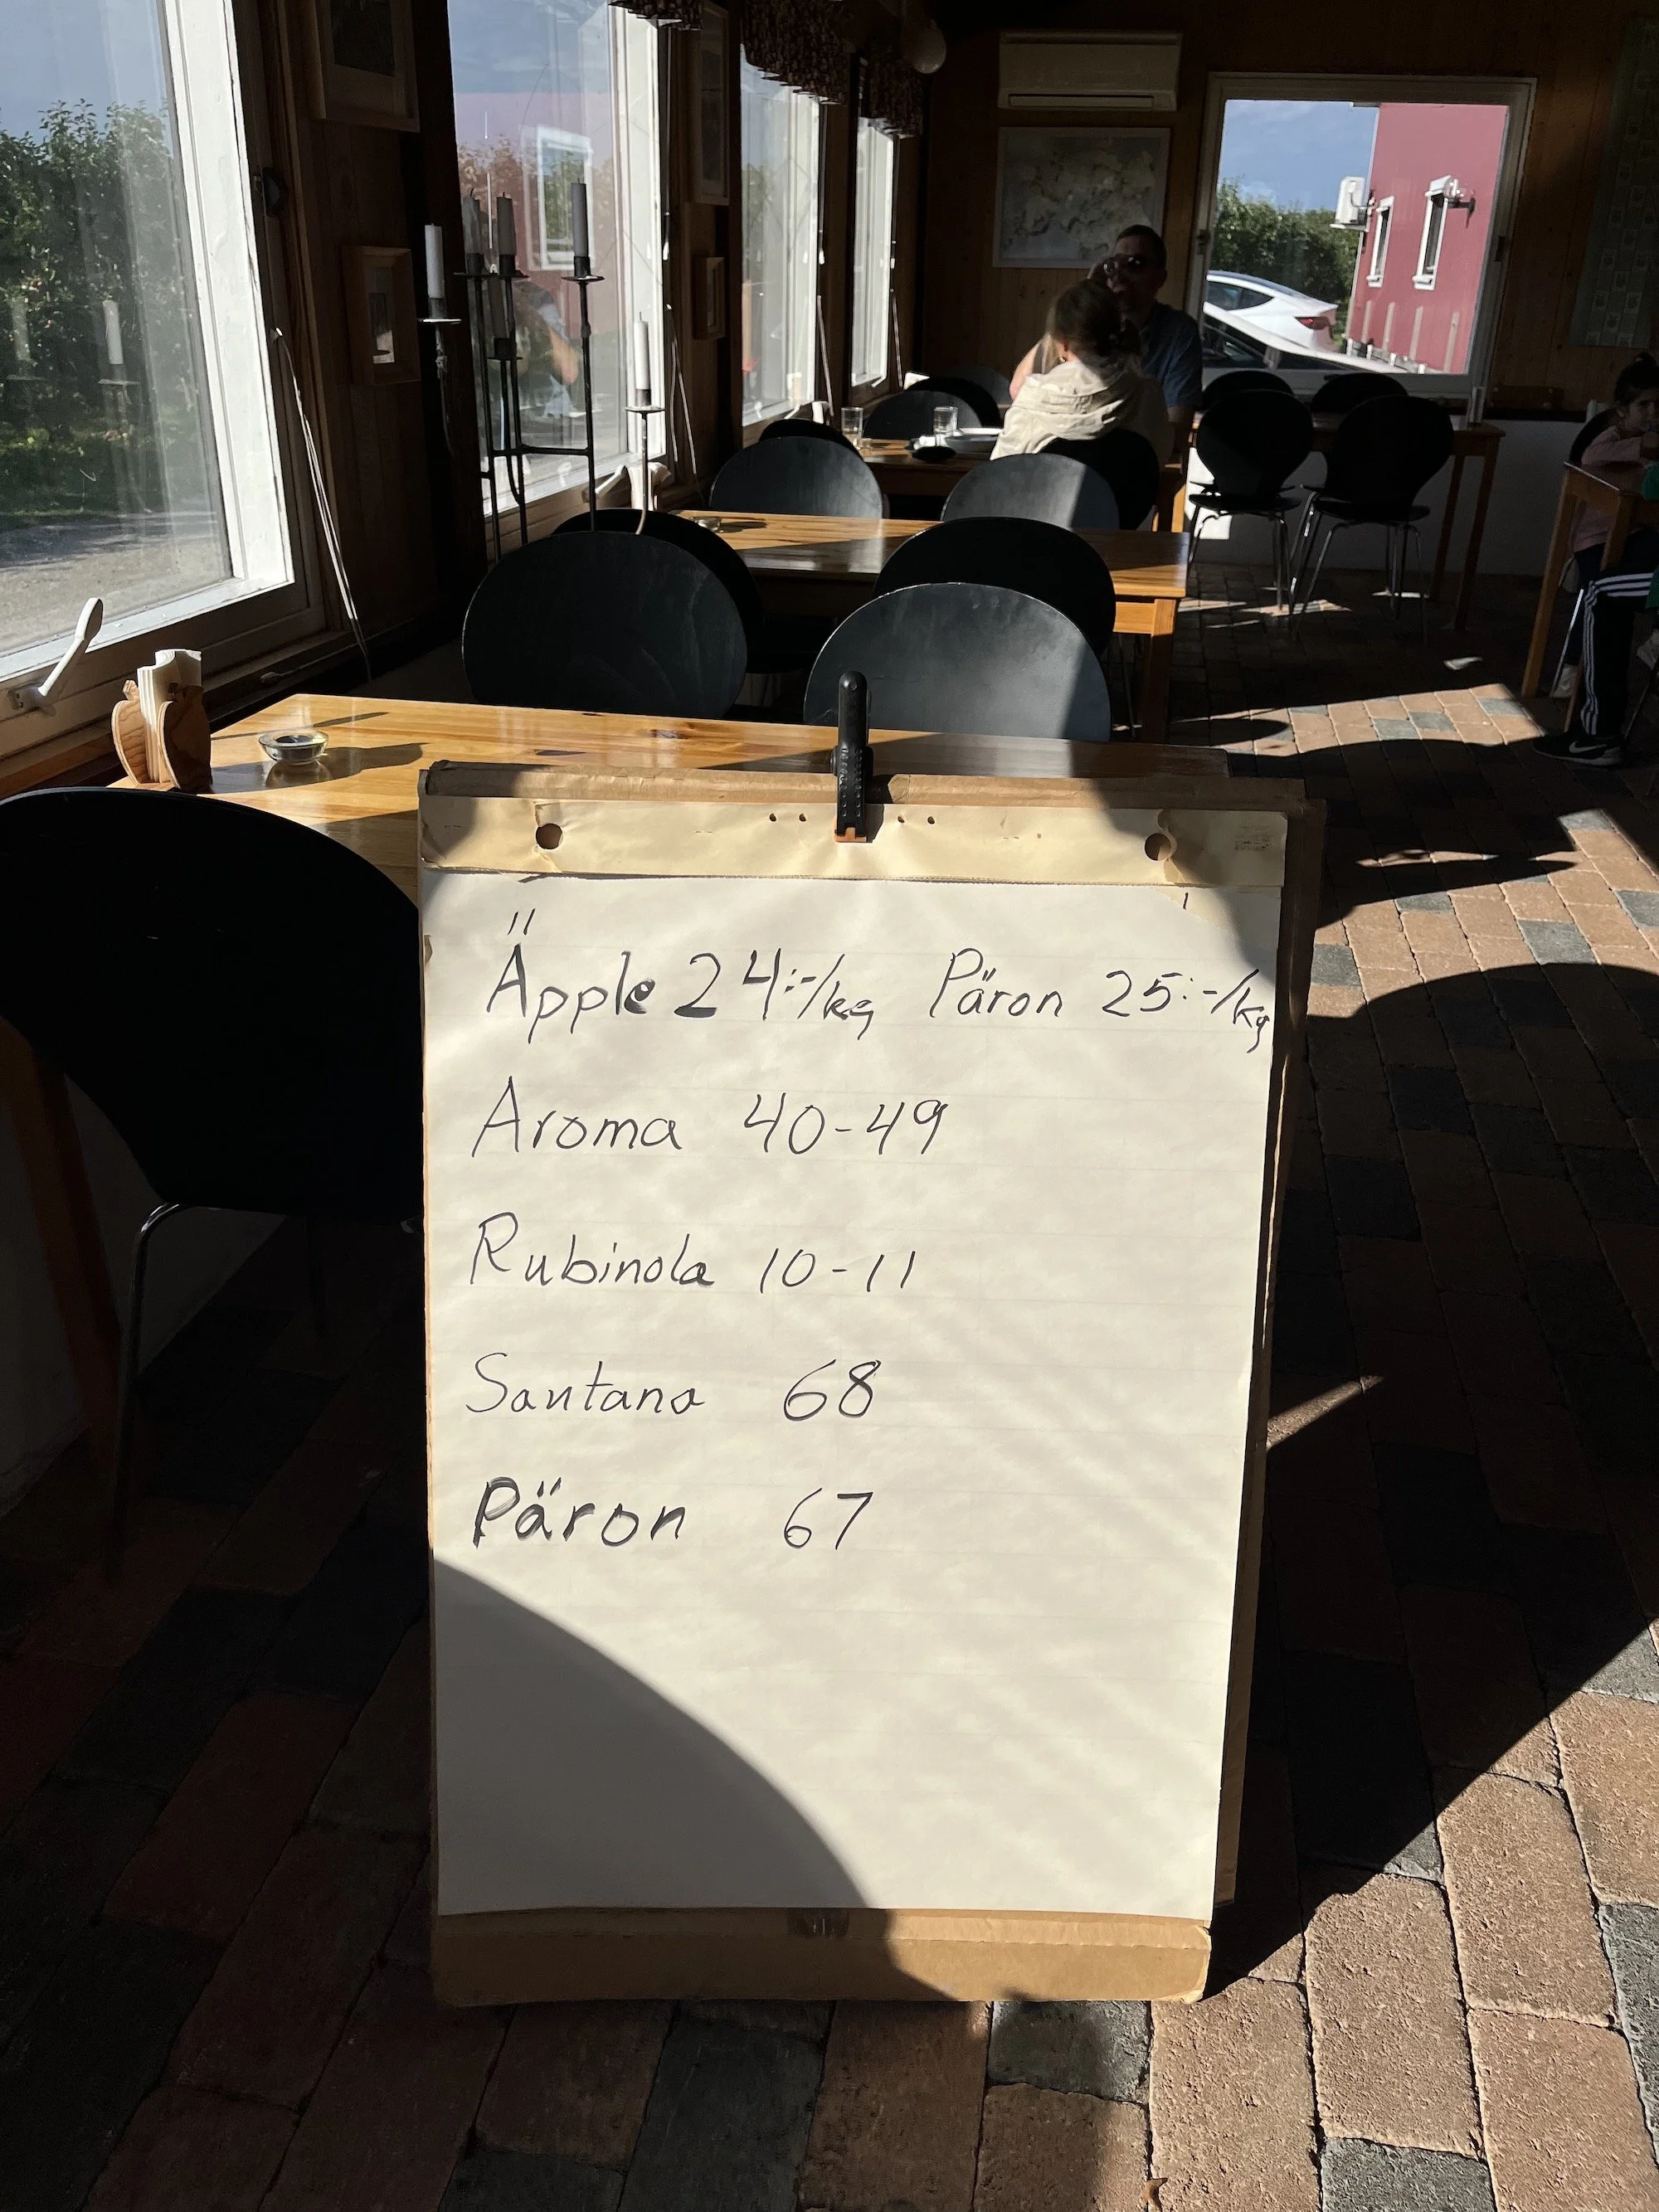 Äpple 24:-/kg Päron 25:-/kg
Aroma 40-49
Rubinola 10-11
Santana 68
Päron 67